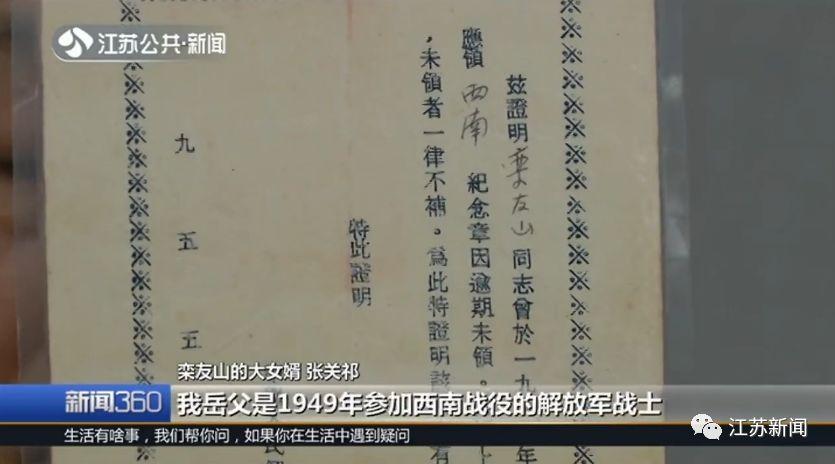 江苏公共·新闻
茲證明栾友山同志曾於一九
年
應領西南紀念章因逾期未領。
上
，未領者一律不補。爲此特證明
有
特此證明
九五五
栾友山的大女婿 张关祁
新闻360
我岳父是1949年参加西南战役的解放军战士
生活有啥事，我们帮你问，如果你在生活中遇到疑问
江苏新闻